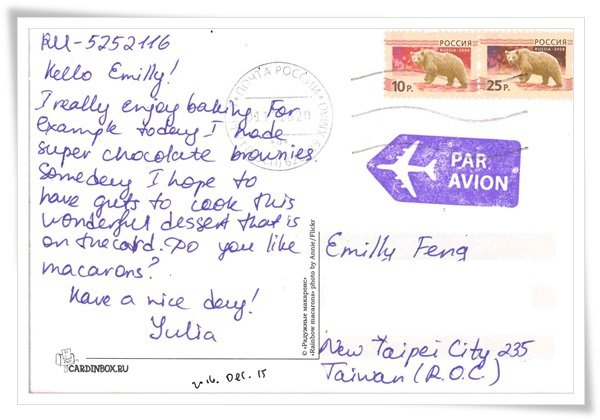 RU-5252116
Hello Emilly!
I really enjoy baking. For
example today I made
super chocolate brownies.
Someday I hope to
have guts to cook this
wonderful dessert that is
on the card. Do you like
macarons?
Have a nice day!
Yulia
CARDINBOX.RU
2016. Dec. 15
© «Радужные макаронс»
«Rainbow macarons» photo by Annie/Flickr
ПОЧТА РОССИИ
РОССИЯ
RUSSIA · 2008
10 Р.
РОССИЯ
RUSSIA · 2008
25 Р.
PAR
AVION
Emilly Feng
New Taipei City 235
Taiwan (R.O.C.)